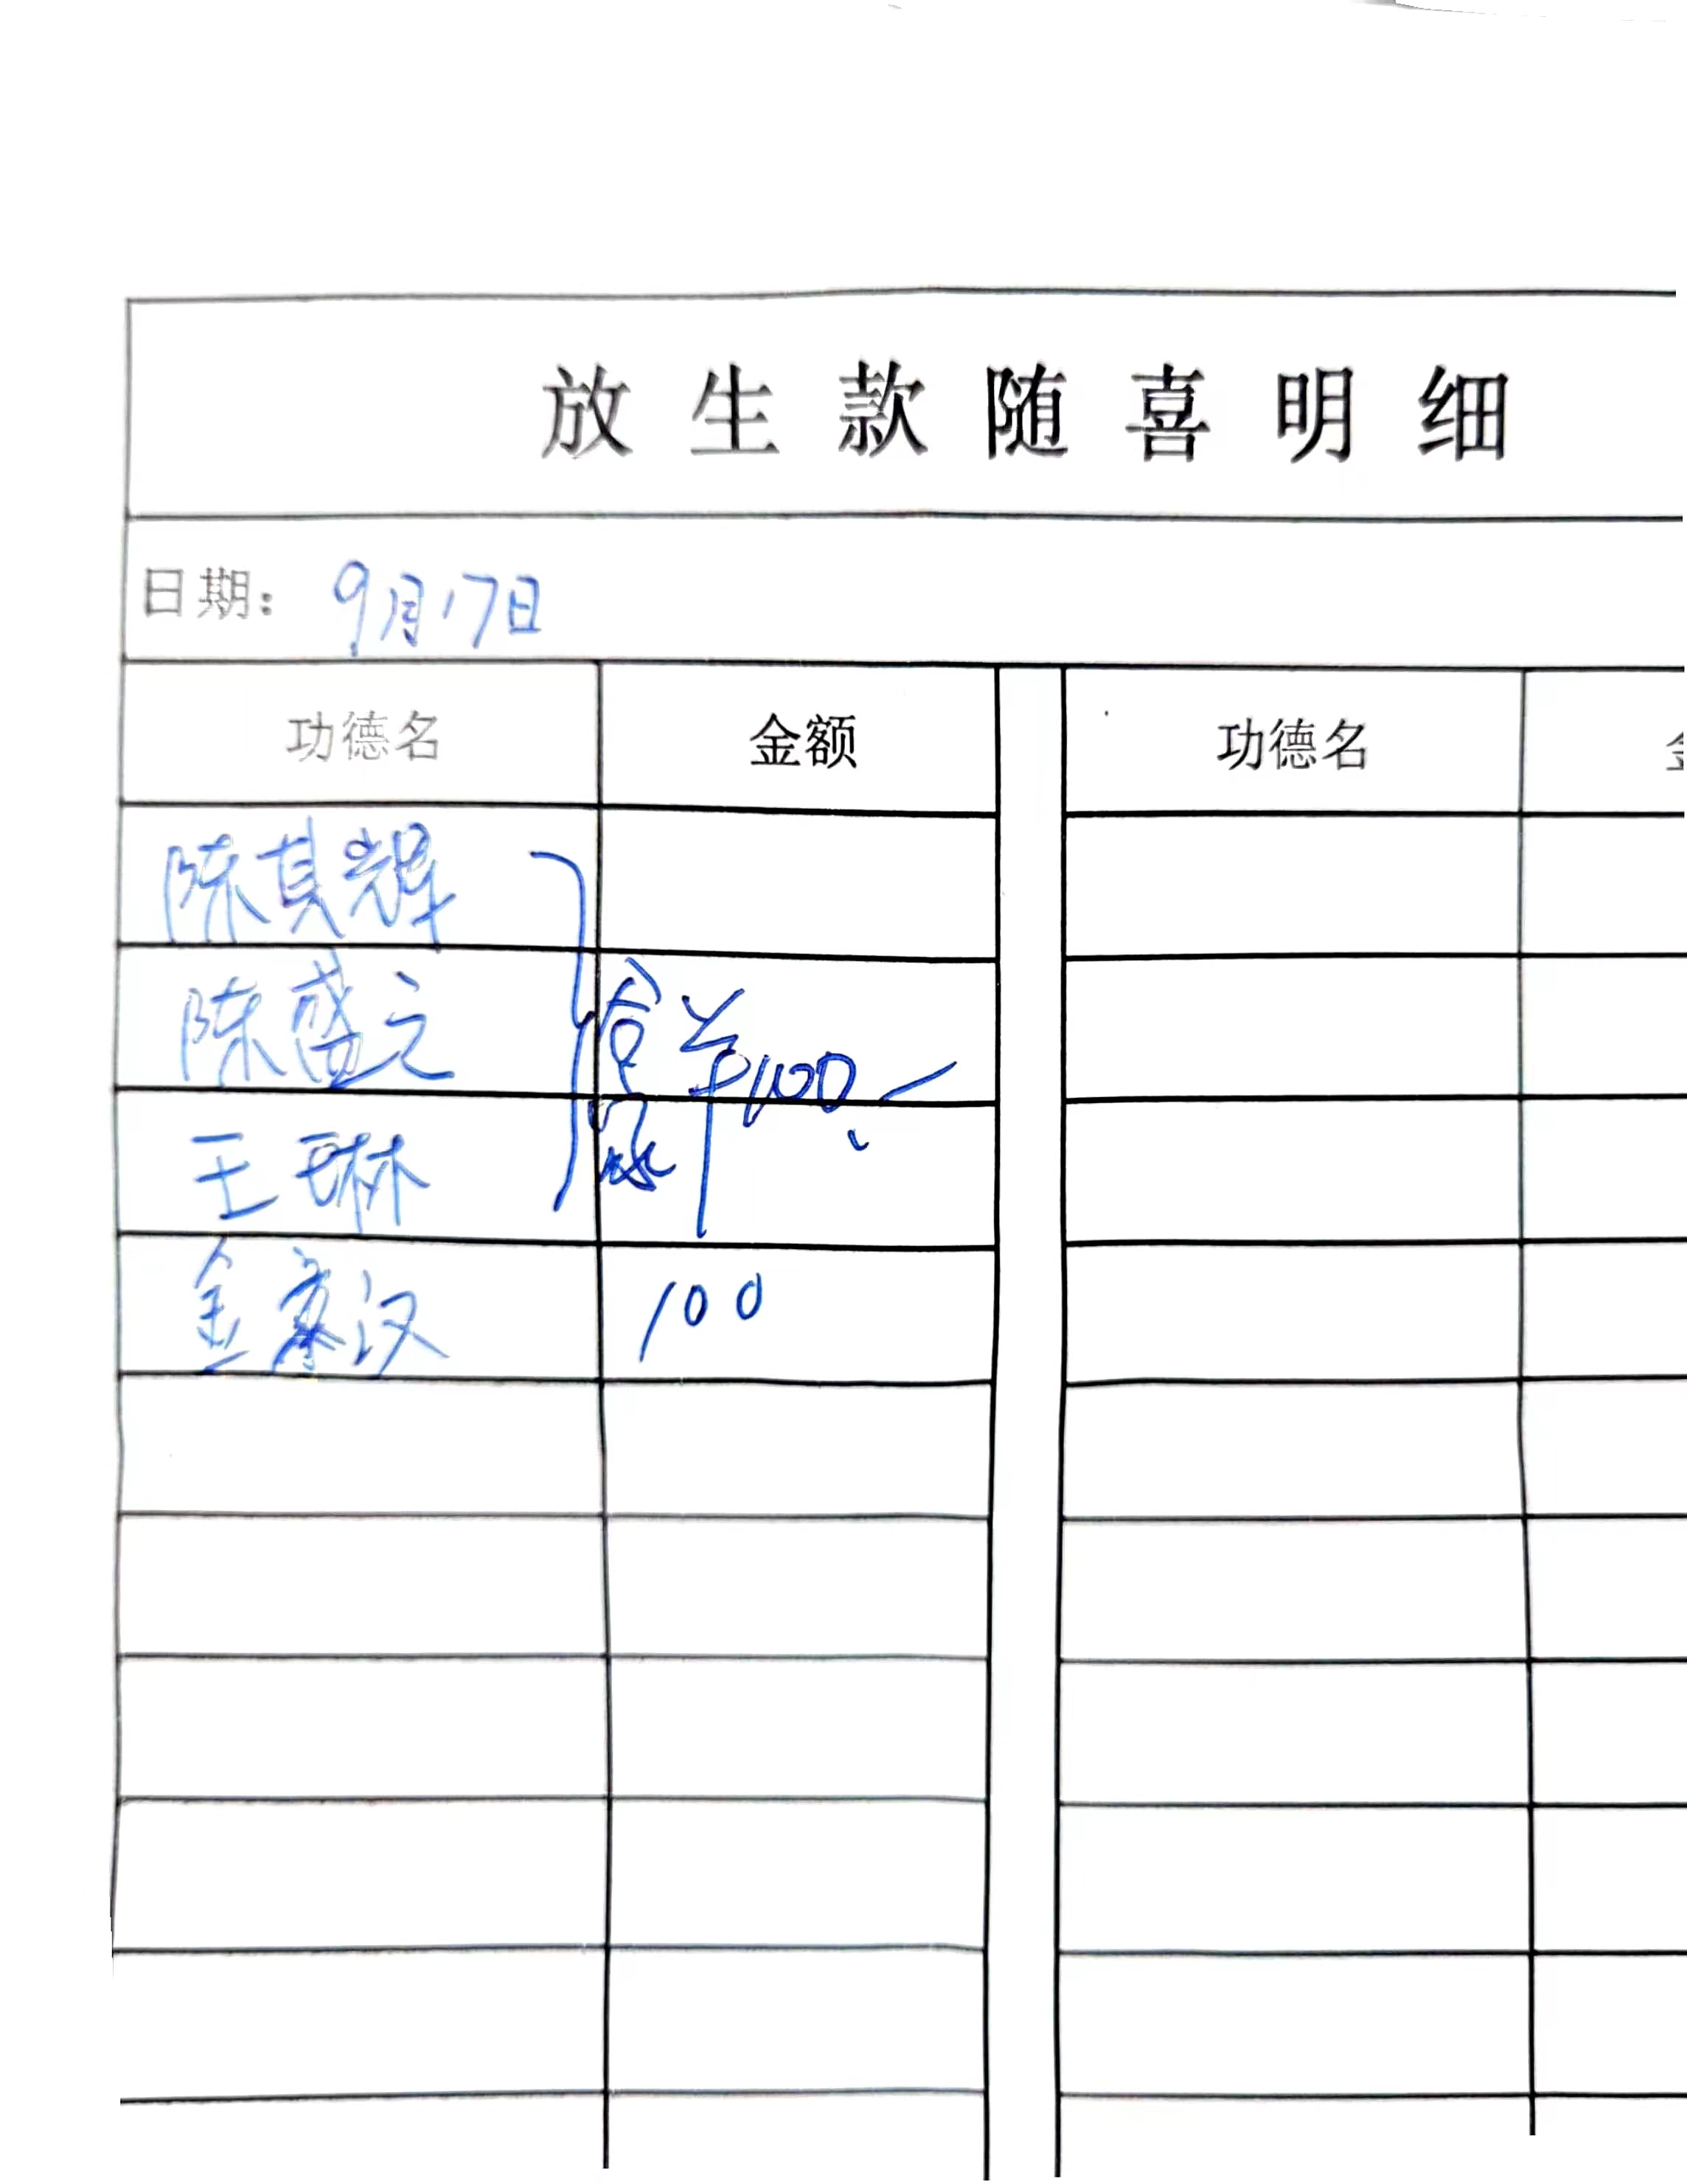 放生款随喜明细
日期：9月17日
功德名 金额 功德名
陈其辉
陈盛元 合家 ¥100.-
王琳
金豪汉 100